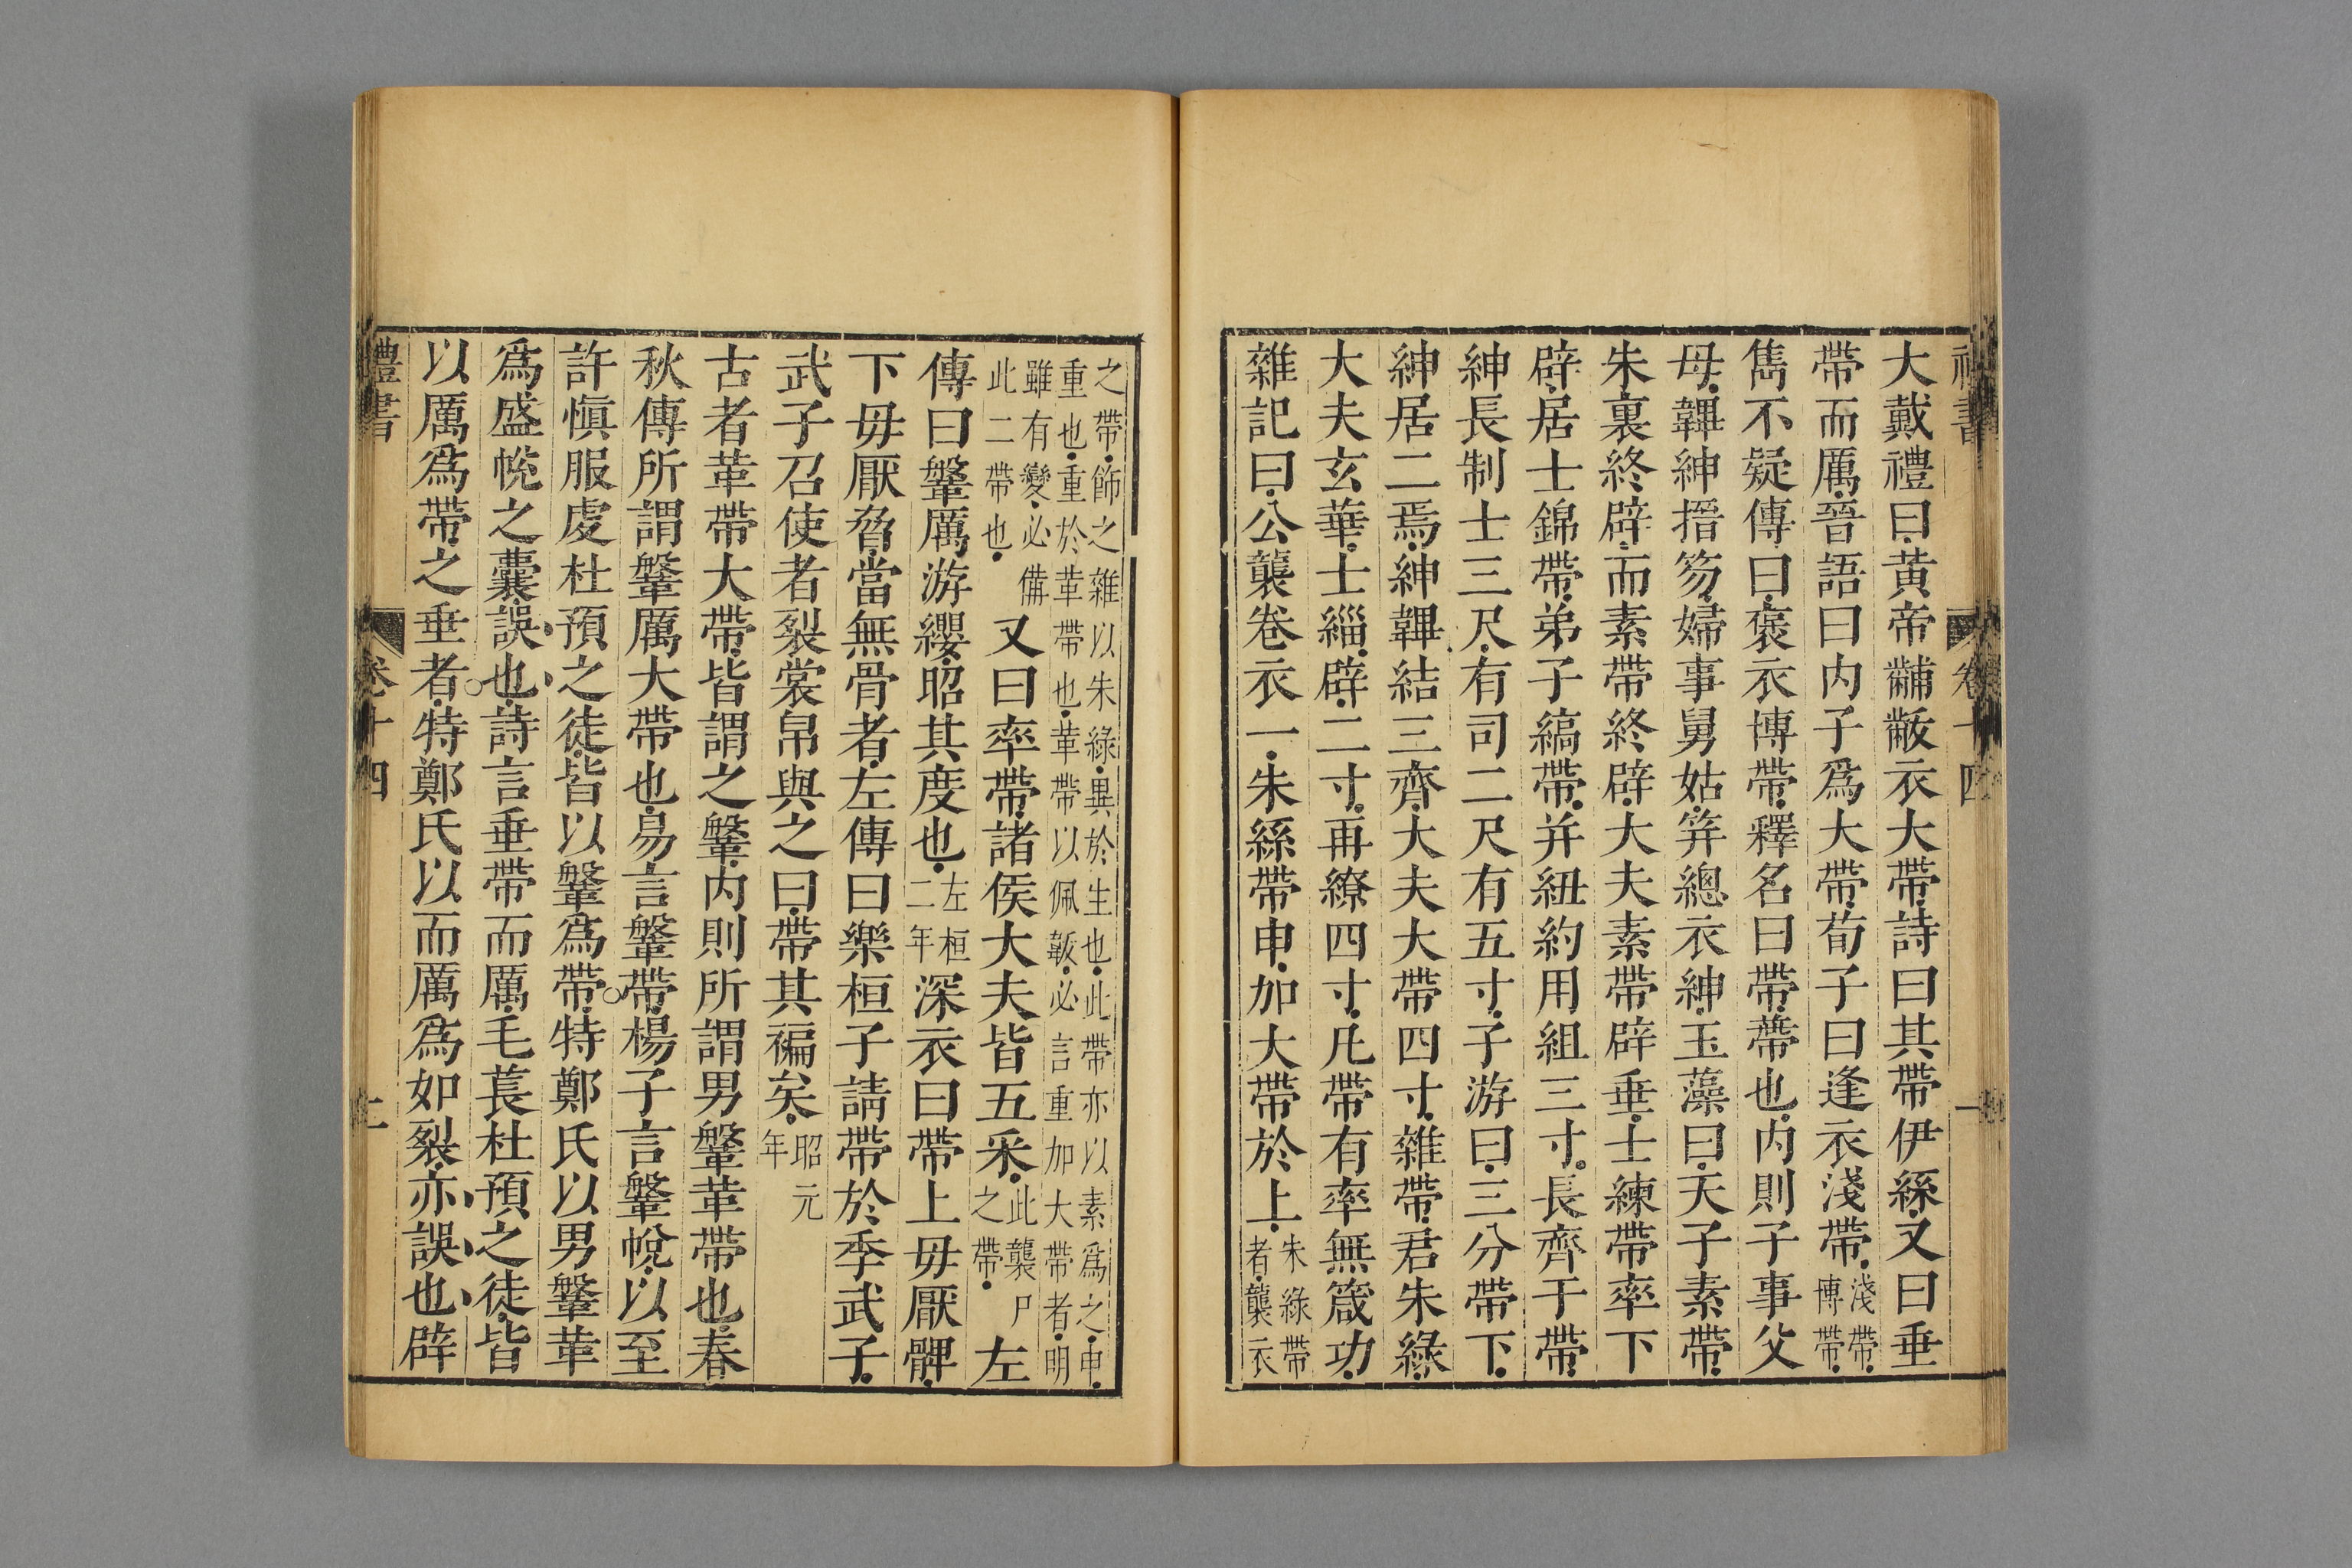 大戴禮曰黃帝黼黻衣大帶詩曰其帶伊絲又曰垂
帶而厲晉語曰內子爲大帶荀子曰逢衣淺帶淺帶博帶
雋不疑傳曰褒衣博帶釋名曰帶蔕也內則子事父
母韠紳搢笏婦事舅姑筓總衣紳玉藻曰天子素帶
朱裏終辟而素帶終辟大夫素帶辟垂士練帶率下
辟居士錦帶弟子縞帶并紐約用組三寸長齊于帶
紳長制士三尺有司二尺有五寸子游曰三分帶下
紳居二焉紳韠結三齊大夫大帶四寸雜帶君朱綠
大夫玄華士緇辟二寸再繚四寸凡帶有率無箴功
雜記曰公襲卷衣一朱綠帶申加大帶於上朱綠帶者襲衣
之帶飾之雜以朱綠異於生也此帶亦以素爲之申
重也重於革帶也革帶以佩韍必言重加大帶者明
雖有變必備此二帶也又曰率帶諸侯大夫皆五采此襲尸之帶左
傳曰鞶厲游纓昭其度也左桓二年深衣曰帶上毋厭髀
下毋厭脅當無骨者左傳曰樂桓子請帶於季武子
武子召使者裂裳帛與之曰帶其褊矣昭元年
古者革帶大帶皆謂之鞶內則所謂男鞶革帶也春
秋傳所謂鞶厲大帶也易言鞶帶楊子言鞶帨以至
許愼服虔杜預之徒皆以鞶爲帶特鄭氏以男鞶革
爲盛帨之囊誤也詩言垂帶而厲毛萇杜預之徒皆
以厲爲帶之垂者特鄭氏以而厲爲如裂亦誤也辟
禮書
卷十四
二